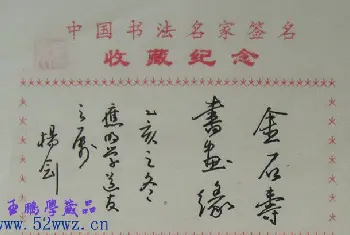 中国书法名家签名
收藏纪念
金石寿
书画缘
乙亥之冬
应明学道友
之属
杨剑
玉鹏学藏品
www.52wwz.cn